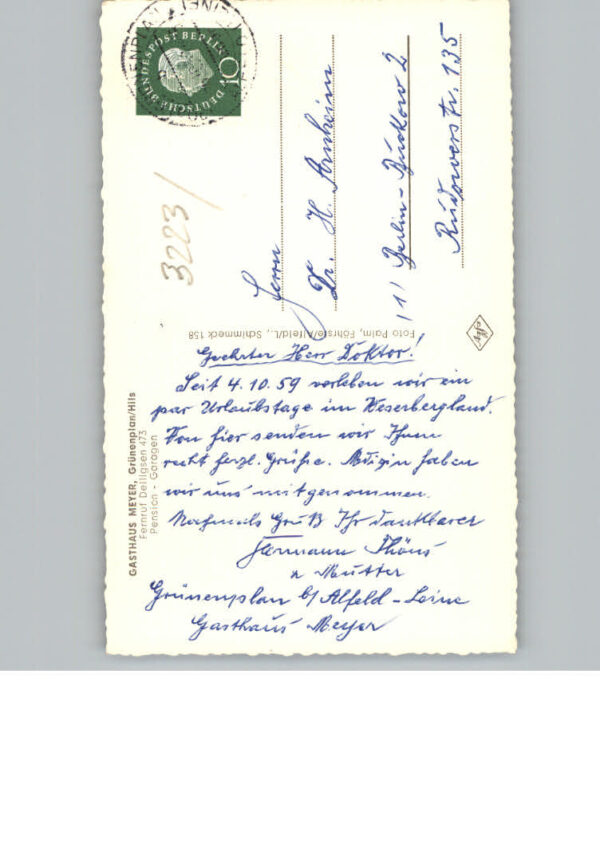 DEUTSCHE BUNDESPOST BERLIN
10
3223/
Herrn
Dr. H. Arnheim
1 1) Berlin-Buckow 2
Rudowerstr. 135
Foto Palm, Föhrste/Alfeld/L., Schimmeck 158
GASTHAUS MEYER, Grünenplan/Hils
Fernruf Delligsen 473
Pension - Garagen
Geehrter Herr Doktor!
Seit 4.10.59 verleben wir ein
par Urlaubstage im Weserbergland.
Von hier senden wir Ihnen
recht herzl. Grüße. Medizin haben
wir uns mitgenommen.
Nochmals Gruß Ihr dankbarer
Hermann
u Mutter
Grünenplan b/ Alfeld-Leine
Gasthaus Meyer